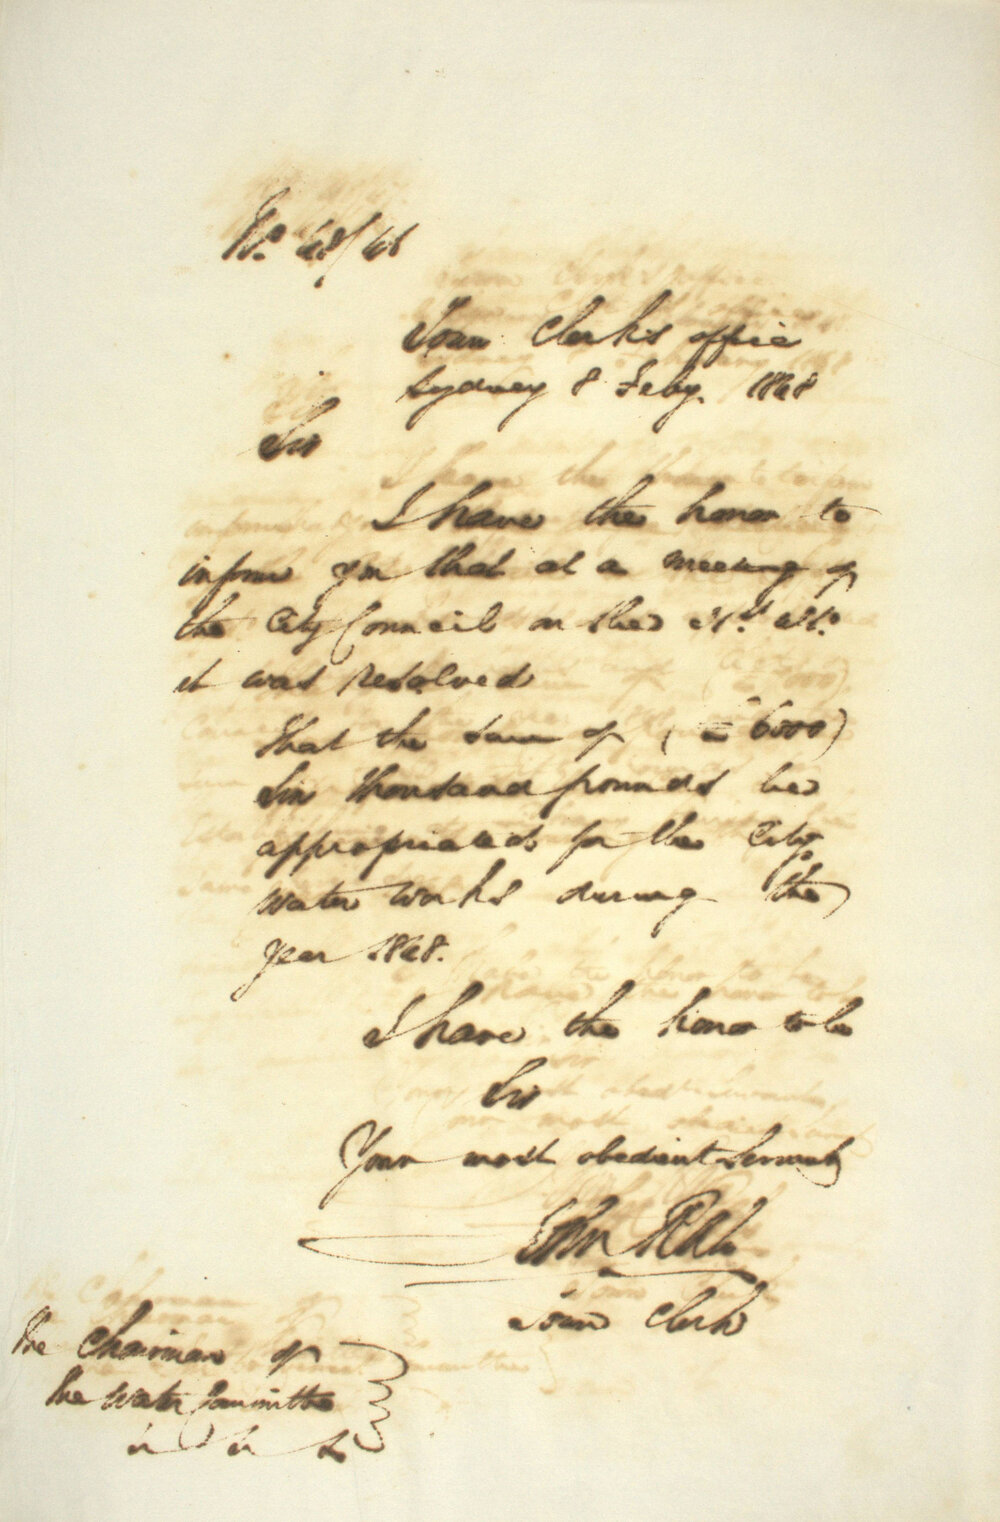 No. 48/46
Town Clerk's office
Sydney 8 Feby. 1848
Sir
I have the honor to
inform you that at a meeting of
the City Council on the 31st. ulto.
it was resolved
that the sum of (£6000)
Six thousand pounds be
appropriated for the City
Water works during the
year 1848.
I have the honor to be
Sir
Your most obedient Servant
John Rae
Town Clerk
The Chairman of
the Water Committee